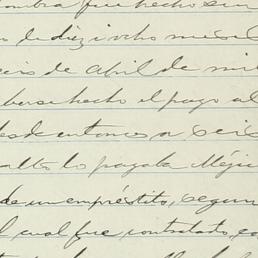 ombra fue hecho sin
n de diez i ocho meses
eis de Abril de mil
berse hecho el pago al
desde entonces a seis
alto lo pagaba Méji
de un empréstito, segun
l cual fue contratado, co